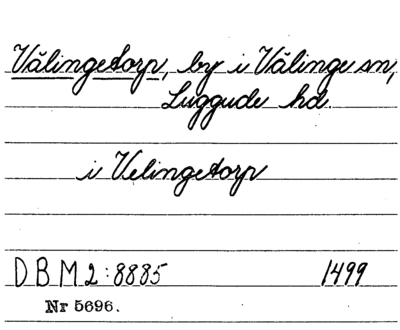 Välingetorp, by i Välinge sn,
Luggude hd.
i Velingetorp
DBM2:8885 1499
Nr 5696.